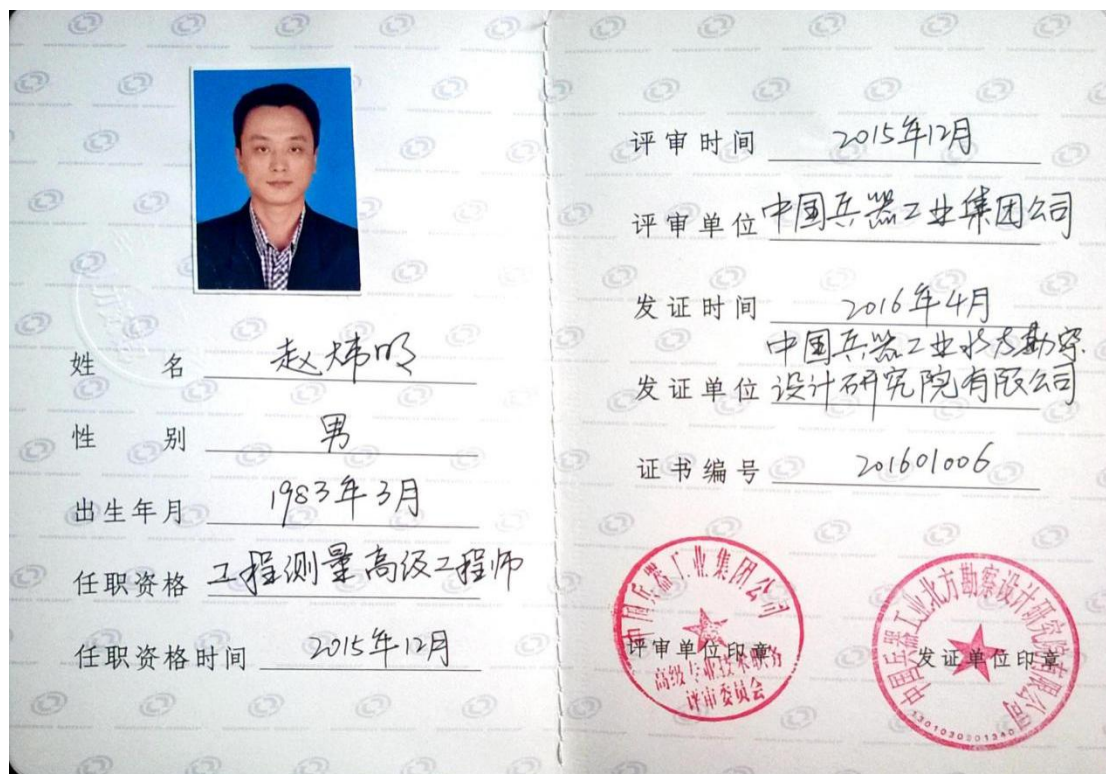 姓 名 赵炜明
性 别 男
出生年月 1983年3月
任职资格 工程测量高级工程师
任职资格时间 2015年12月
评审时间 2015年12月
评审单位 中国兵器工业集团公司
发证时间 2016年4月
中国兵器工业北方勘察
发证单位 设计研究院有限公司
证书编号 201601006
中国兵器工业集团公司
评审单位印章
高级专业技术职务
评审委员会
中国兵器工业北方勘察设计研究院有限公司
发证单位印章
1301030201340